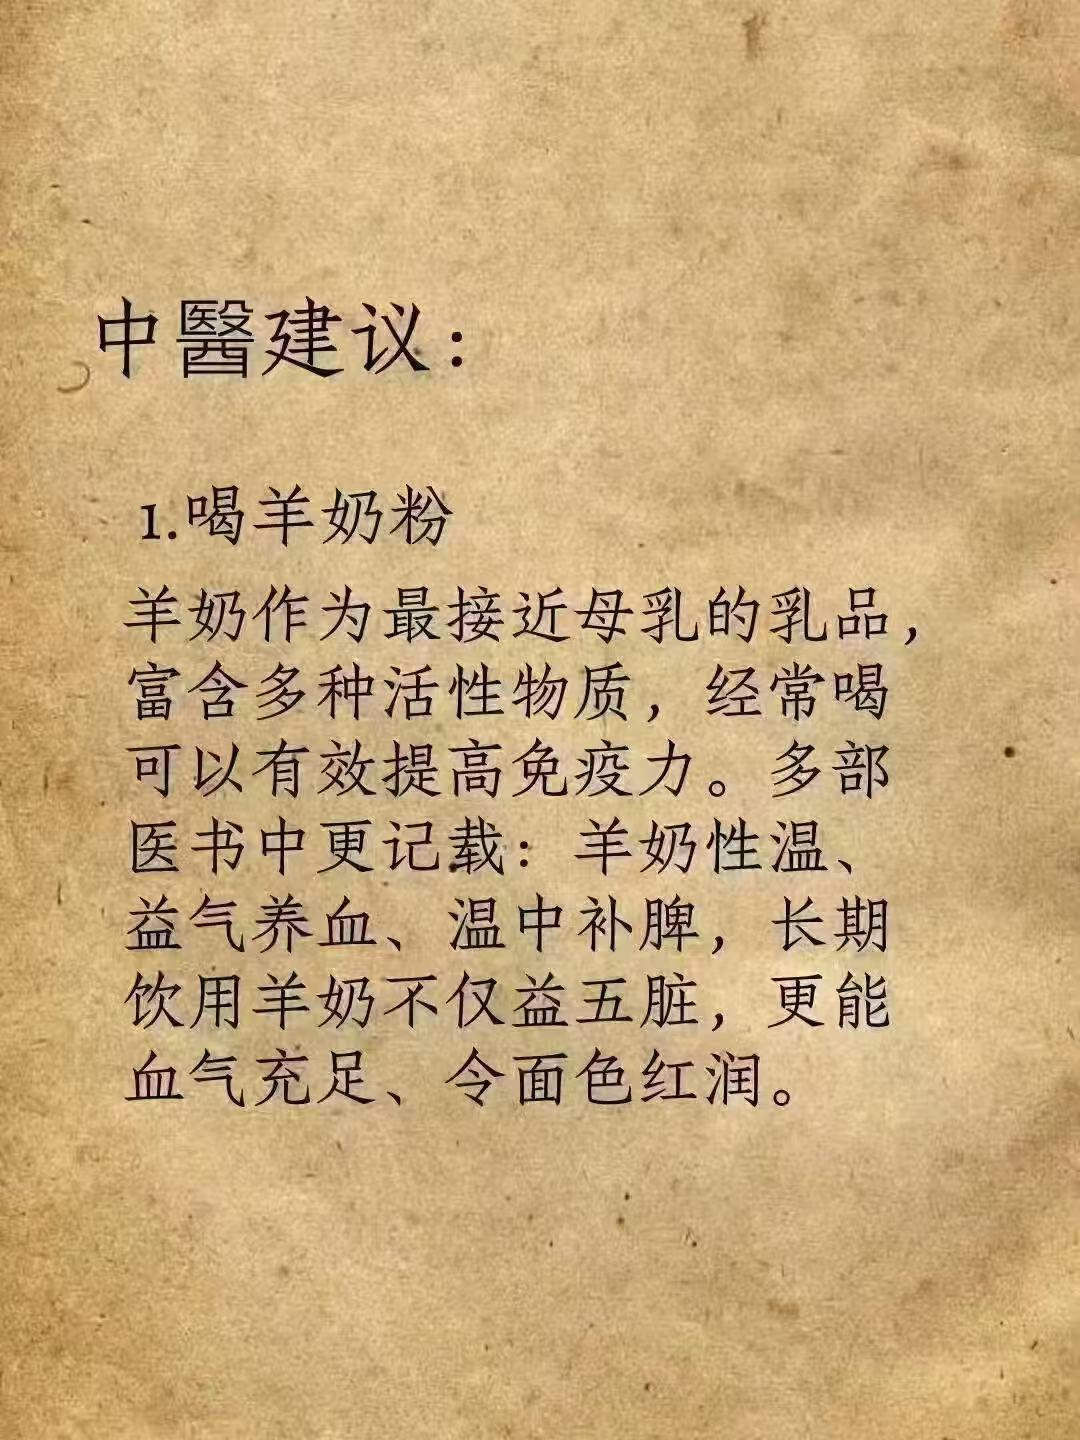 中醫建议：
1.喝羊奶粉
羊奶作为最接近母乳的乳品，
富含多种活性物质，经常喝
可以有效提高免疫力。多部
医书中更记载：羊奶性温、
益气养血、温中补脾，长期
饮用羊奶不仅益五脏，更能
血气充足、令面色红润。